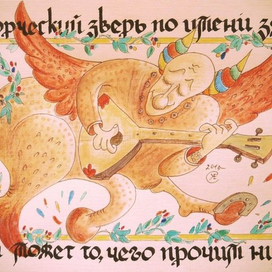 орческий зверь по имени
2010
может то, чего прочим ни